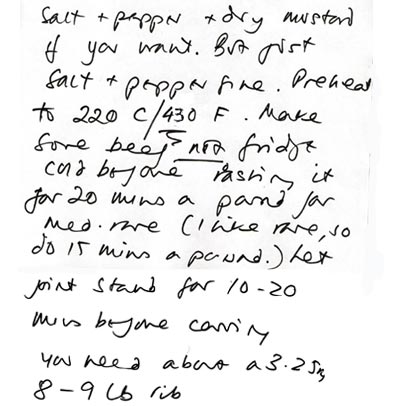 Salt + pepper + dry mustard
if you want. But just
salt + pepper fine. Preheat
to 220 C/430 F. Make
sure beef is not fridge
cold before roasting it
for 20 mins a pound for
med. rare (I like rare, so
do 15 mins a pound.) Let
joint stand for 10-20
mins before carving
you need about a 3.25kg
8-9 lb rib